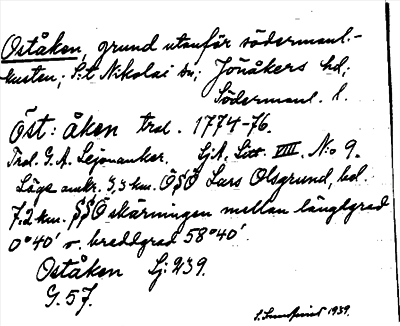 Oståken, grund utanför södermanl.-
kusten; S:t Nikolai sn; Jönåkers hd;
Södermanl. l.
Öst: åken trol. 1774-76.
Trol. G. A. Lejonanker. SjA. Litt. VIII. No 9.
Läge omkr. 3,3 km. ÖSÖ Lars Olsgrund, bl.
7,2 km. SSÖ skärningen mellan längdgrad
0°40' o. breddgrad 58°40'.
Oståken Sj: 239.
G. 57.
1939.